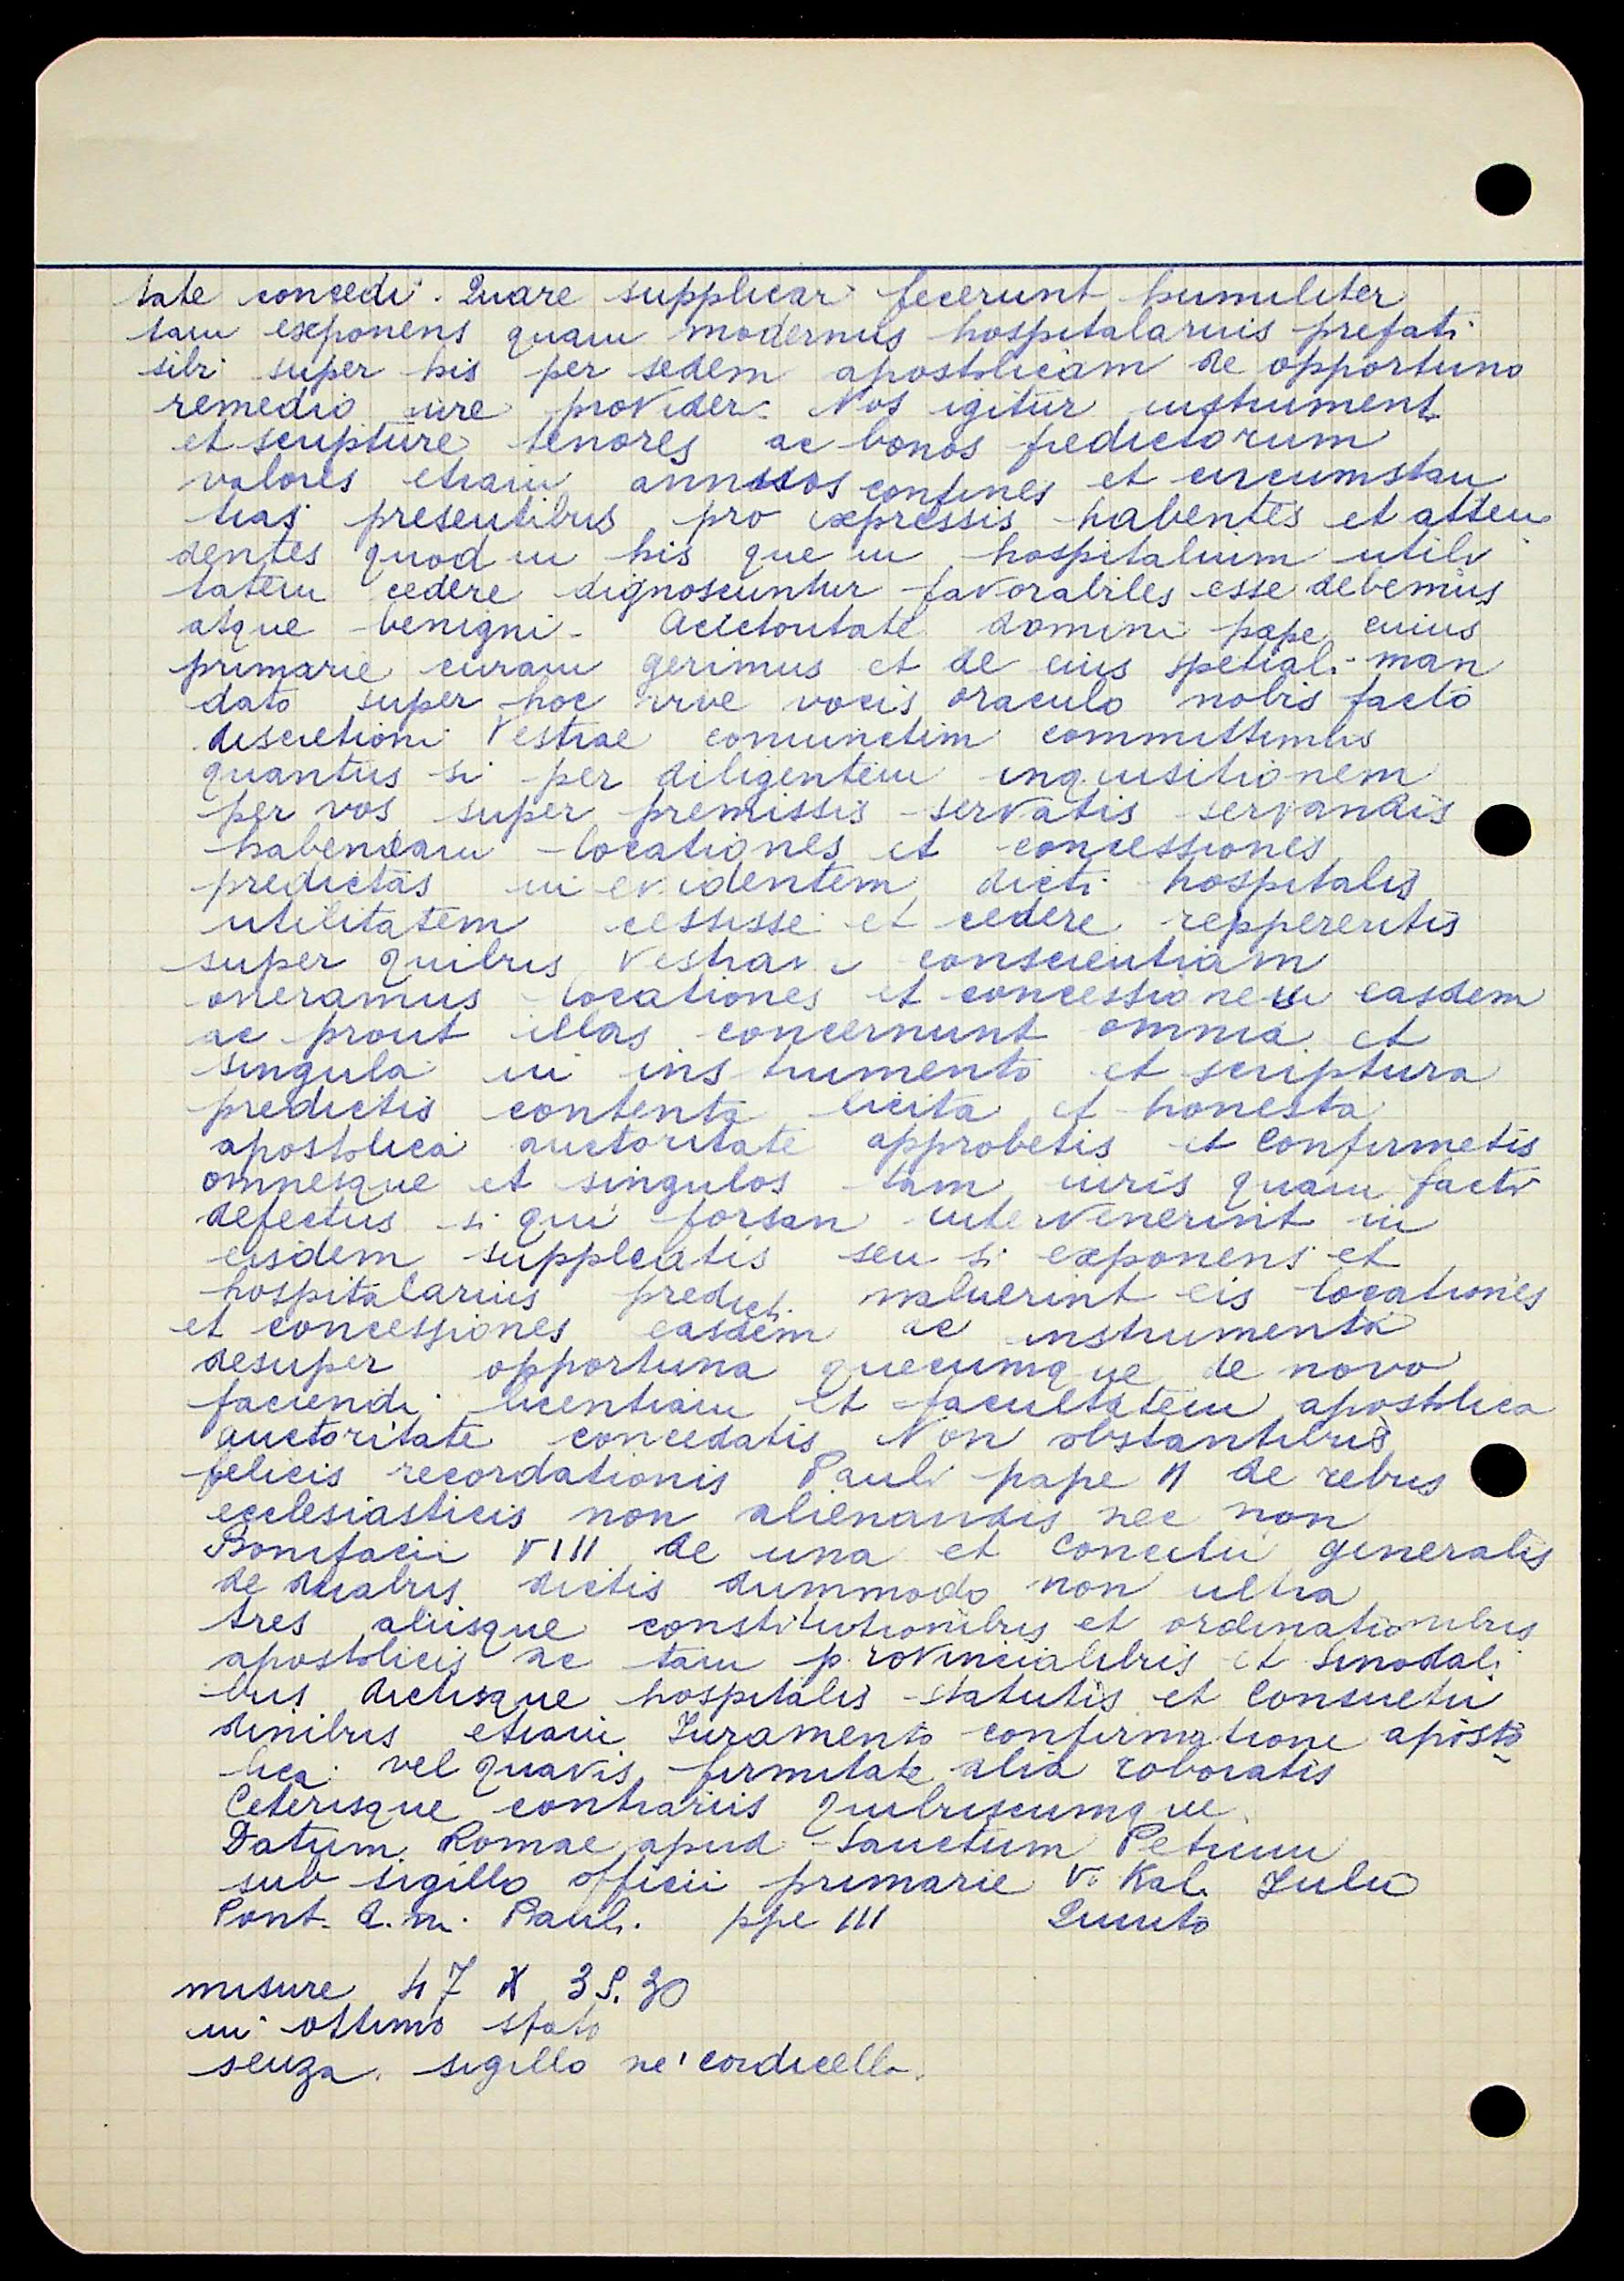 tate concedi. Quare supplicar fecerunt humiliter
tam exponens quam modernus hospitalarius prefati
sibi super his per sedem apostolicam de opportuno
remedio iure provider. Nos igitur instrument
et scripture tenores ac bonos predictorum
valores etiam annosos confines et circumstan
tias presentibus pro expressis habentes et atten
dentes quod in his que in hospitalium utili
tatem cedere dignoscuntur favorabiles esse debemus
atque benigni. Auctoritate domini pape cuius
primarie curam gerimus et de eius spetiali man
dato super hoc vive vocis oraculo nobis facto
discretioni Vestrae coniunctim committimus
quantus si per diligentem inquisitionem
per vos super premissis servatis servandis
habendam locationes et concessiones
predictas in evidentem dicti hospitalis
utilitatem cessisse et cedere reppereritis
super quibus Vestram conscientiam
oneramus locationes et concessionem easdem
ac prout illas concernunt omnia et
singula in ins trumento et scriptura
predictis contenta licita et honesta
apostolica auctoritate approbetis et confirmetis
omnesque et singulos tam iuris quam facti
defectus si qui forsan intervenerint in
eisdem suppleatis seu si exponens et
hospitalarius predicti maluerint eis locationes
et concessiones easdem ac instrumenta
desuper opportuna quecumque de novo
faciendi licentiam et facultatem apostolica
auctoritate concedatis Non obstantibus
felicis recordationis Pauli pape II de rebus
ecclesiasticis non alienandis nec non
Bonifacii VIII de una et Concilii generalis
de duabus dictis dummodo non ultra
tres aliisque constitutionibus et ordinationibus
apostolicis ac tam provincialibris et sinodali
bus dictisque hospitalis statutis et consuetu
dinibus etiam Iuramento confirmatione aposto
lica vel quavis firmitate alia roboratis
Ceterisque contrariis quibuscumque.
Datum Romae apud Sanctum Petrum
sub sigillo officii primarie V. Kal. Iulii
Pont. d.m. Pauli. ppe III Quinto
misure 47 X 35.30
in ottimo stato
senza sigillo ne' cordicella.